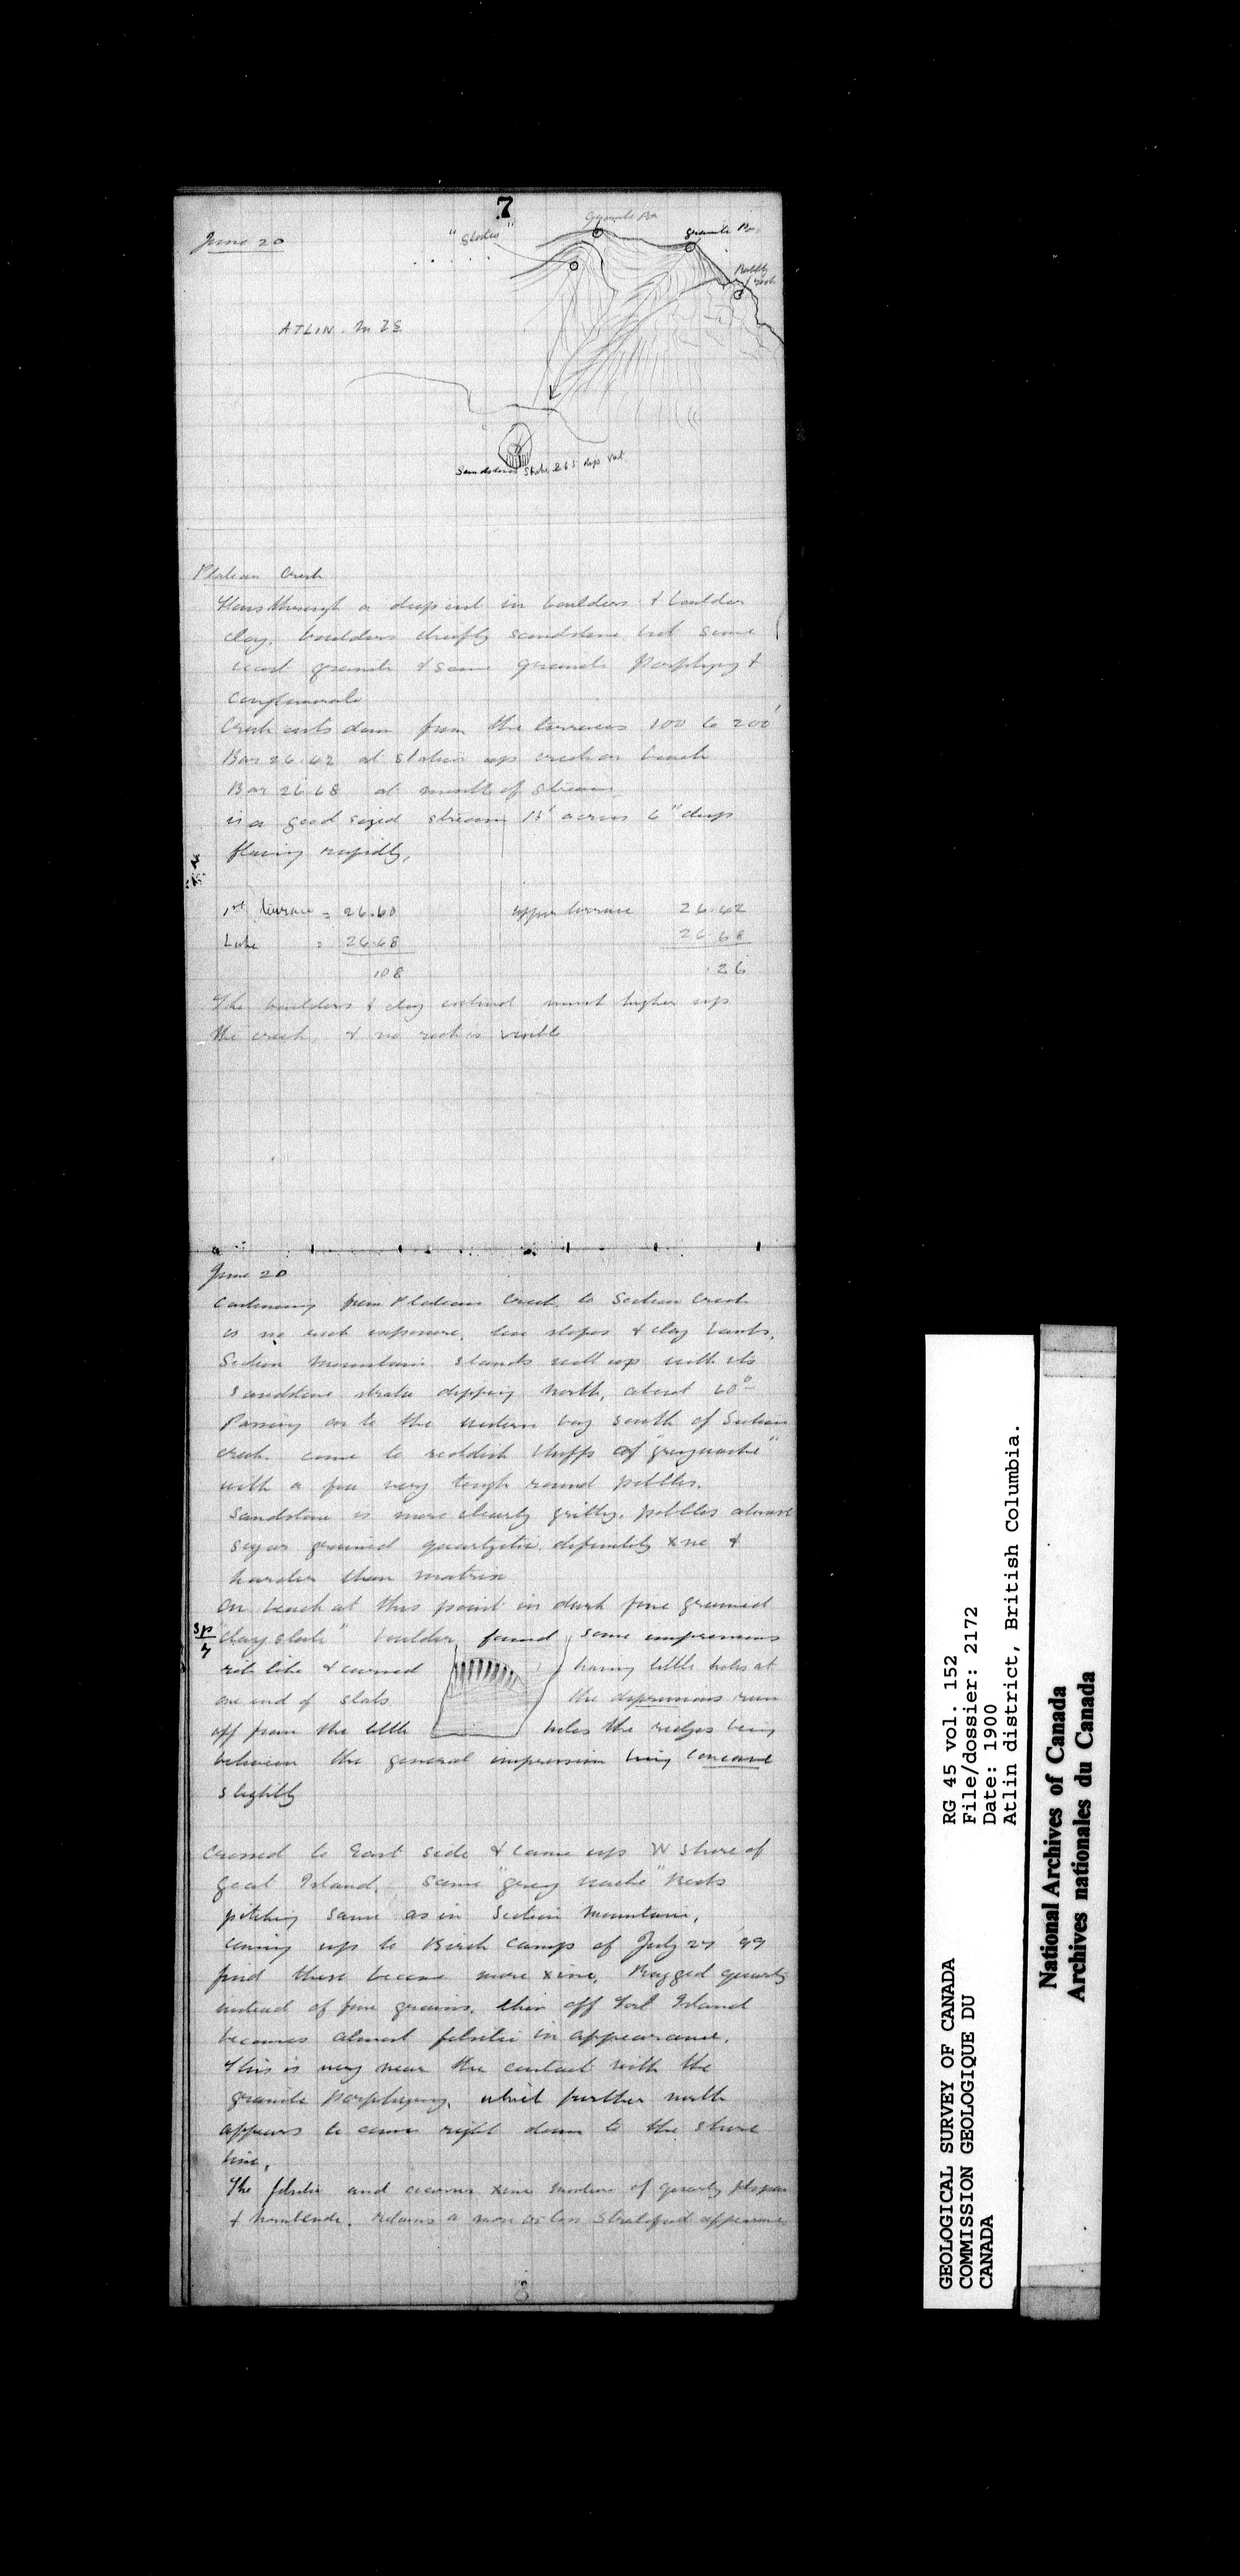 7
June 20
"Slates"
granite Por
granite Por
ATLIN. M 25
Sandstone Strike 265 dips Vert.
Plateau Creek
Flows through a deep cut in boulders & boulder
clay. boulders chiefly sandstone but some
granite & some granite Porphyry &
conglomerate
Creek cuts down from the terraces 100 to 200'
Bar 26.42 at station up creek on bench
Bar 26.68 at mouth of stream
is a good sized stream 15' across 6" deep
flowing rapidly,
1st terrace = 26.60 upper terrace 26.42
Lake = 26.68 26.68
.08 .26
The boulders & clay extend much higher up
the creek, & no rock is visible
June 20
Continuing from Plateau Creek to Section Creek
is no rock exposure, low slopes & clay banks,
Section Mountain stands well up with its
sandstone strata dipping North, about 60°
Passing on to the western bay south of Section
creek come to reddish bluffs of "greywacke"
with a few very tough round pebbles.
Sandstone is more clearly gritty, pebbles almost
sugar grained quartzitic, definitely xne &
harder than matrix
On beach at this point in dark fine grained
Sp 7
"clay slate" boulder found some impressions
rib like & curved having little holes at
one end of slab. the depressions run
off from the little holes the ridges being
between the general impression being concave
slightly
Crossed to East side & came up W shore of
Goat Island. same "grey wacke" rocks
pitching same as in Section Mountain,
Coming up to Birch Camp of July 27 99
find these become more xine, Rugged quartz
instead of fine grains, then off Goat Island
becomes almost felsitic in appearance.
This is very near the contact with the
granite porphyry, which further north
appears to come right down to the shore
line,
The felsitic and xine of quartz felspar
& hornblende. retains a more or less stratified appearance
8
GEOLOGICAL SURVEY OF CANADA
COMMISSION GEOLOGIQUE DU
CANADA
RG 45 vol. 152
File/dossier: 2172
Date: 1900
Atlin district, British Columbia.
National Archives of Canada
Archives nationales du Canada